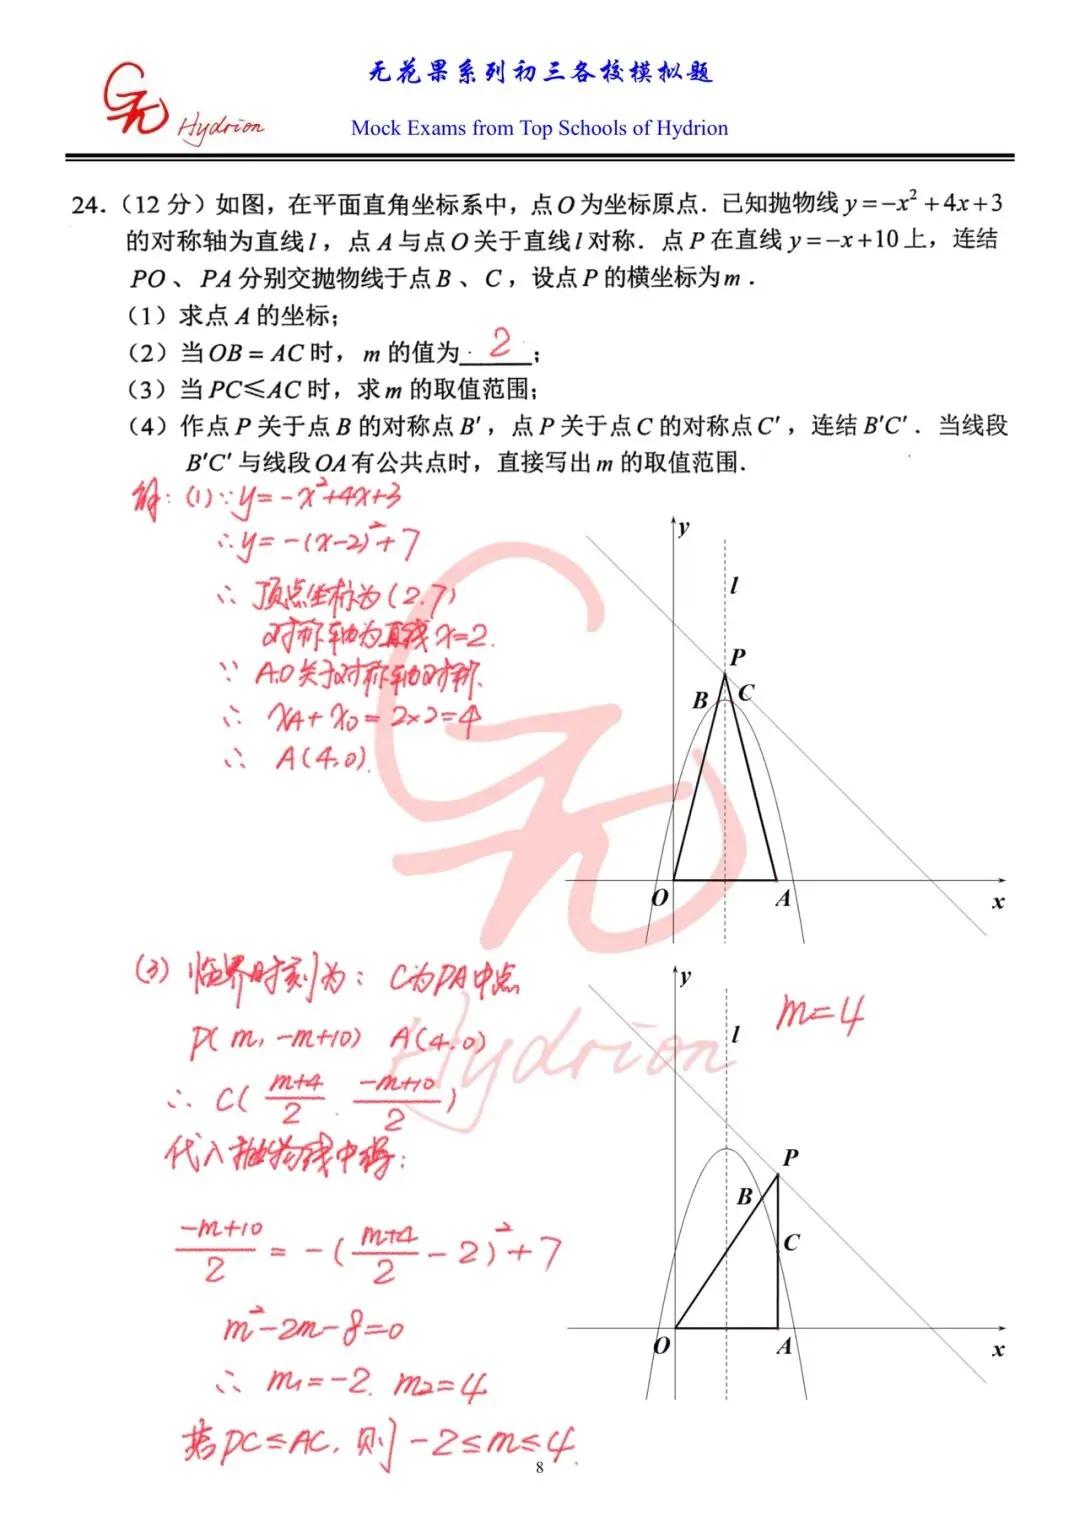 无花果系列初三各校模拟题
Hydrion
Mock Exams from Top Schools of Hydrion
24.（12 分）如图，在平面直角坐标系中，点O为坐标原点．已知抛物线 y=-x²+4x+3
的对称轴为直线 l，点 A 与点 O 关于直线 l 对称．点 P 在直线 y=-x+10 上，连结
PO、PA 分别交抛物线于点 B、C，设点 P 的横坐标为 m．
（1）求点 A 的坐标；
（2）当 OB = AC 时，m 的值为 2 ；
（3）当 PC≤AC 时，求 m 的取值范围；
（4）作点 P 关于点 B 的对称点 B′，点 P 关于点 C 的对称点 C′，连结 B′C′．当线段
B′C′ 与线段 OA 有公共点时，直接写出 m 的取值范围．
解：(1)∵y=-x²+4x+3
∴y=-(x-2)²+7
∴顶点坐标为(2,7)
对称轴为直线x=2.
∵ A,O关于对称轴对称.
∴ xA+xO=2×2=4
∴ A(4,0).
y
l
P
B C
O A x
(3) 临界时刻为：C为PA中点
P(m, -m+10) A(4,0)
∴ C( (m+4)/2 , (-m+10)/2 )
代入抛物线中得：
(-m+10)/2 = -( (m+4)/2 - 2)²+7
m²-2m-8=0
∴ m1=-2, m2=4
若PC≤AC, 则 -2≤m≤4.
y
m=4
l
P
B
C
O A x
Hydrion
8